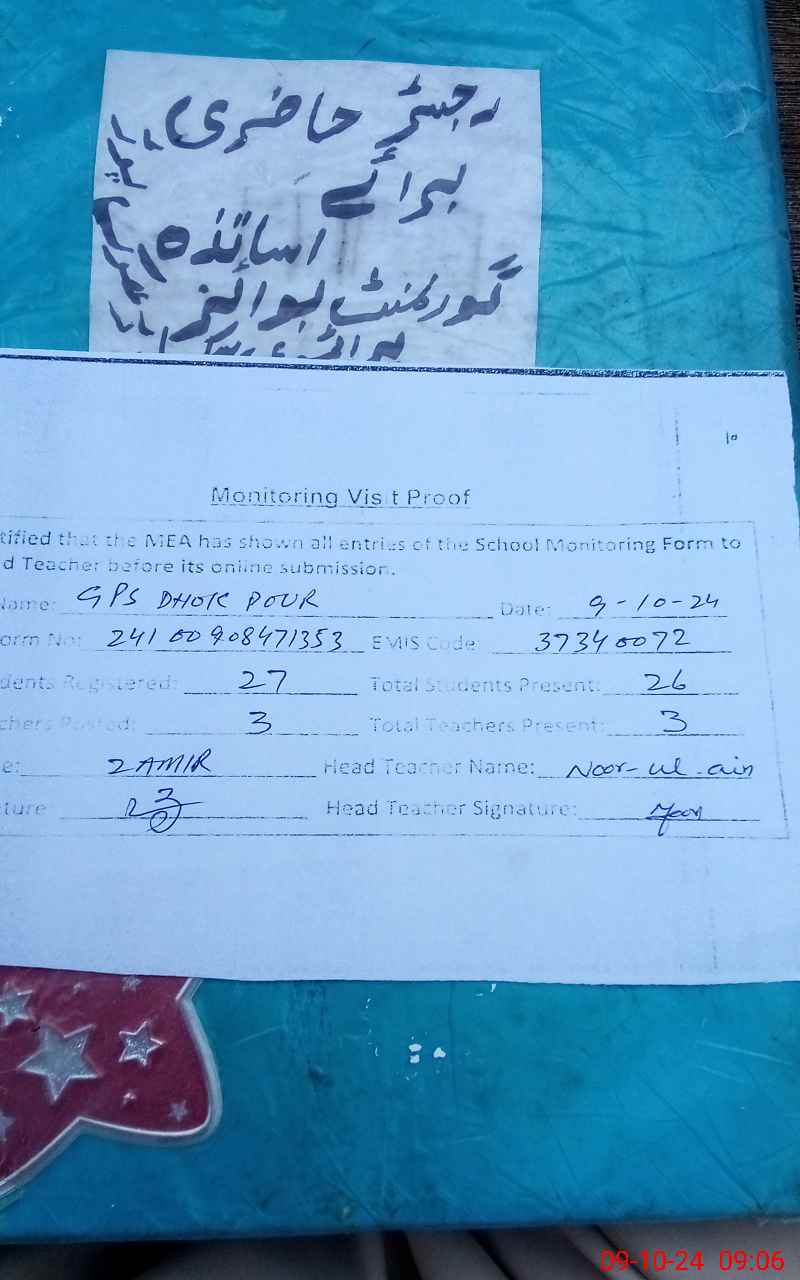 رجسٹر حاضری
برائے
اساتذہ
گورنمنٹ بوائز
پرائمری
10
Monitoring Visit Proof
tified that the MEA has shown all entries of the School Monitoring Form to
d Teacher before its online submission.
Name: GPS DHOK DOUR Date: 9-10-24
orm No: 241 00908471353 EMIS Code: 37340072
dents Registered: 27 Total Students Present: 26
chers Posted: 3 Total Teachers Present: 3
e: ZAMIR Head Teacher Name: Noor-ul-ain
ture Head Teacher Signature: Noor
09-10-24 09:06